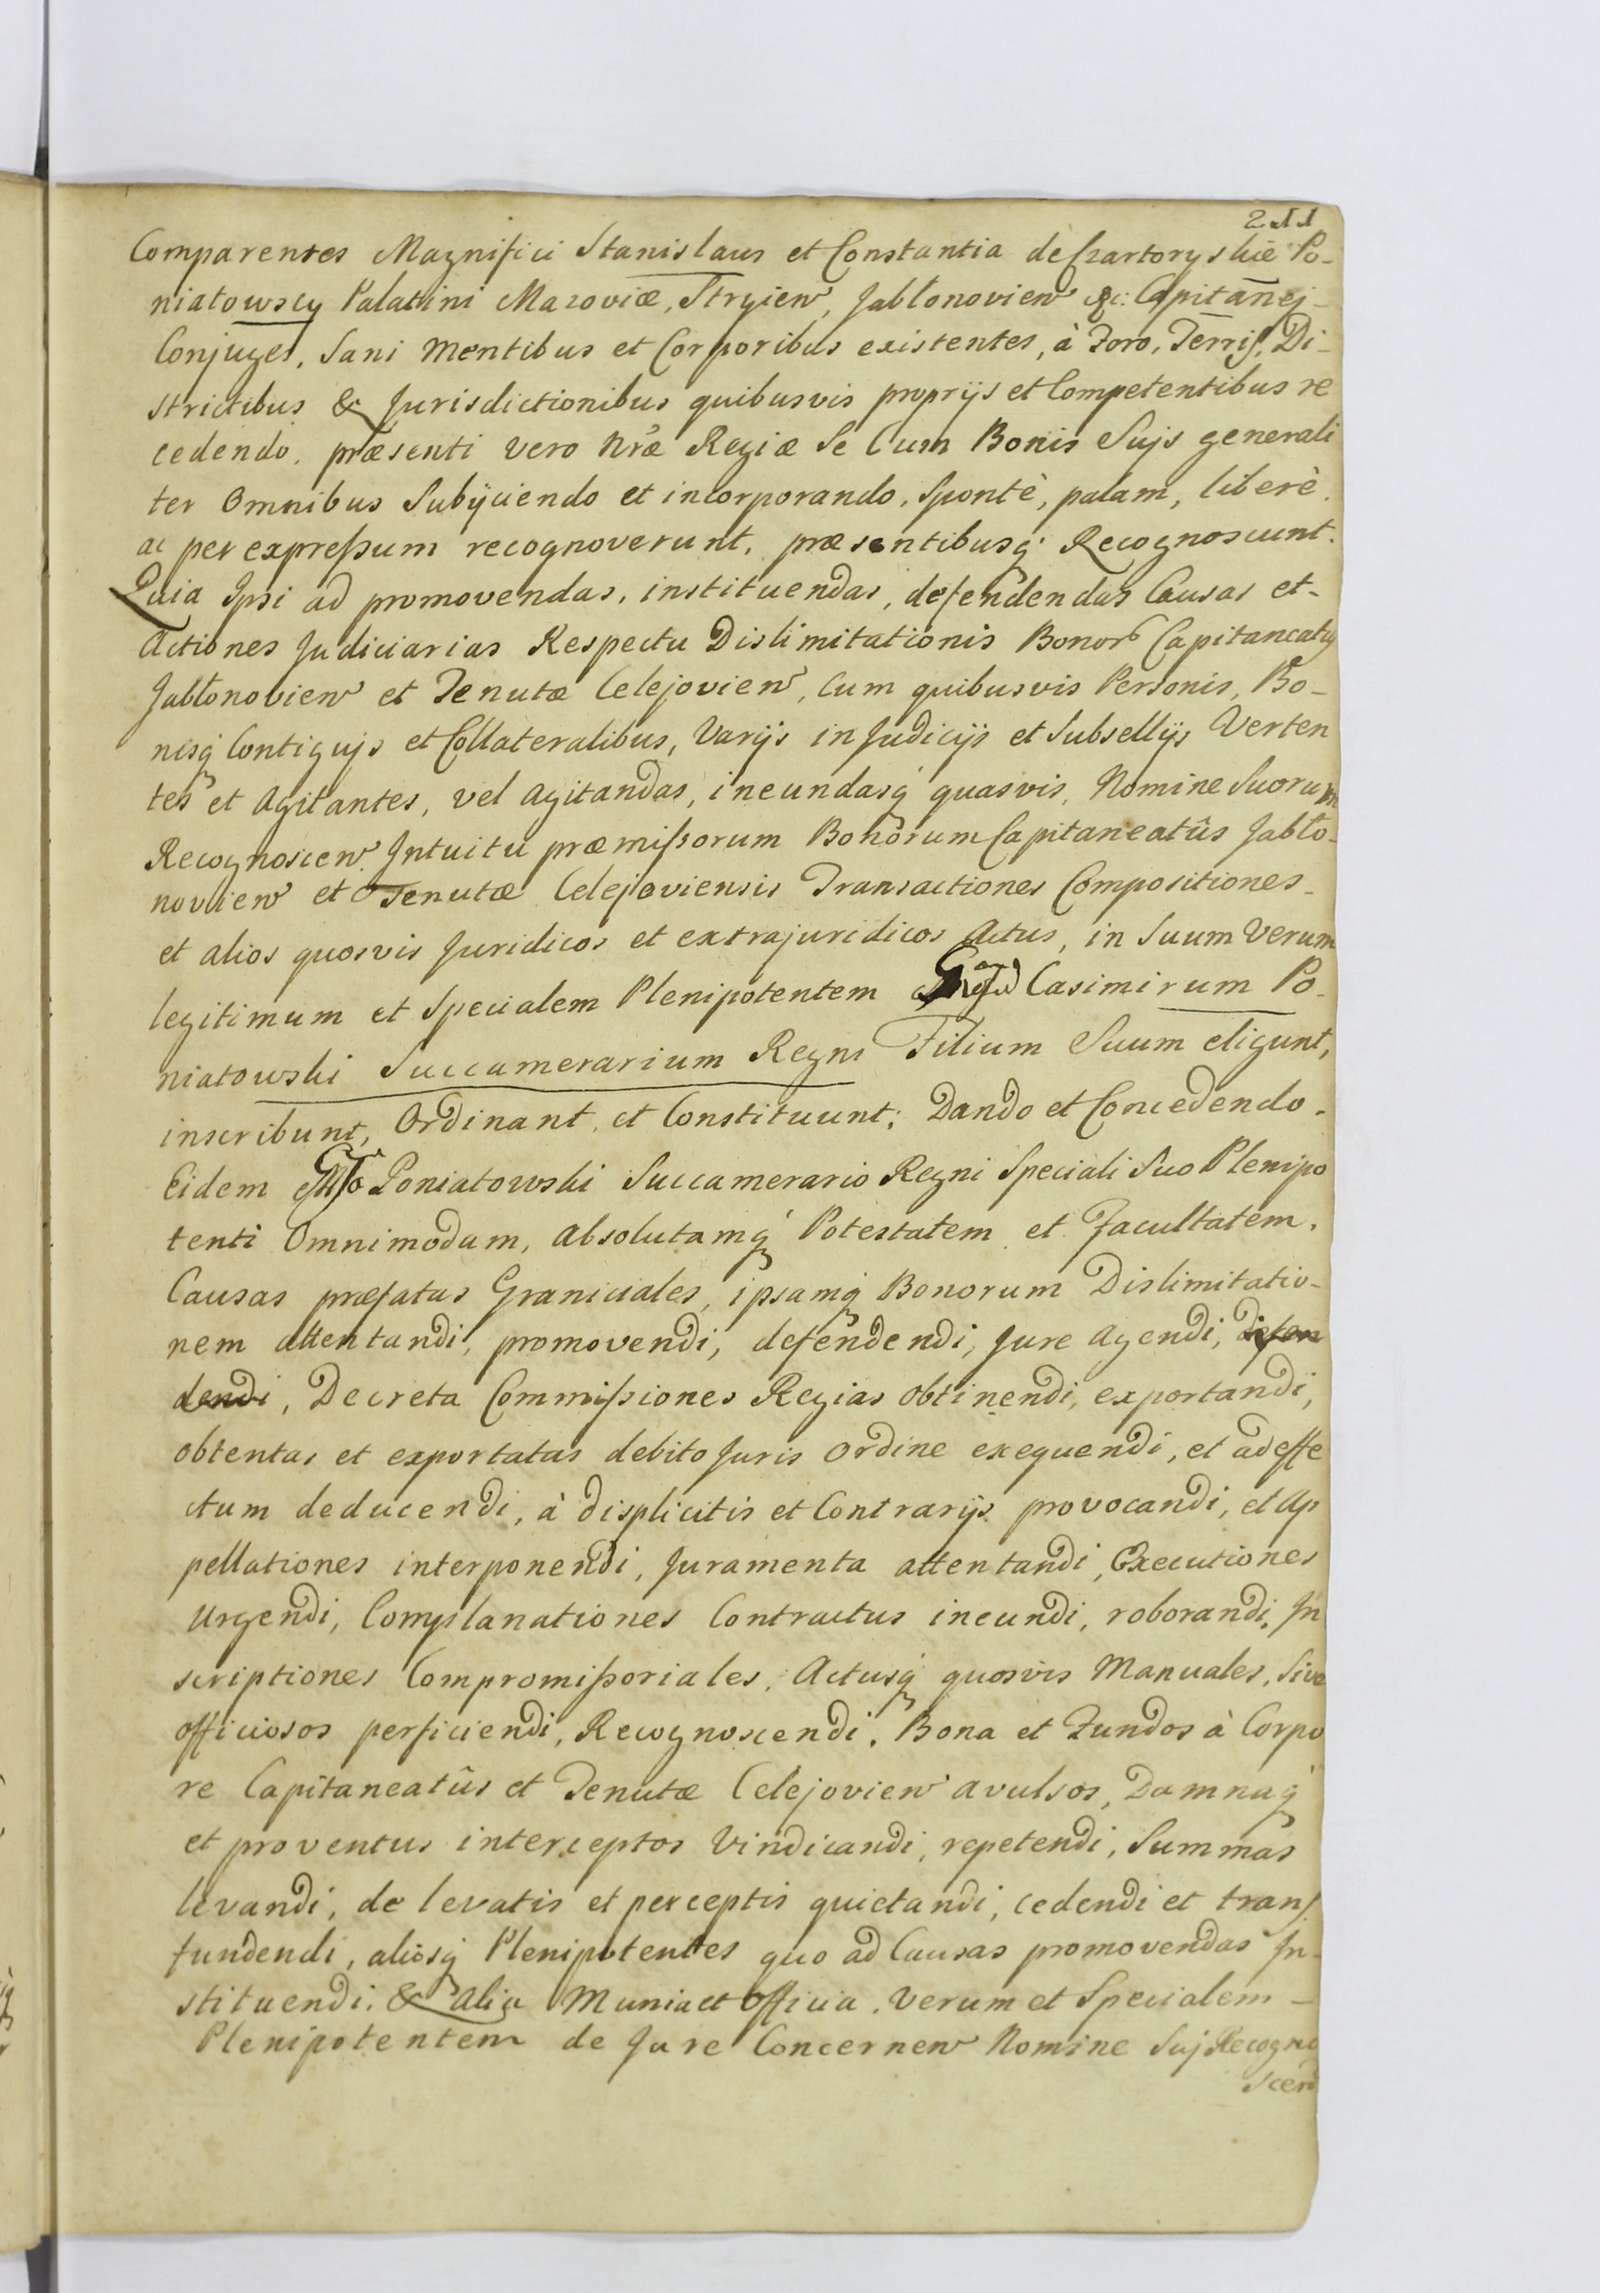 211
Comparentes Magnifici Stanislaus et Constantia de Czartoryskie Po-
niatowscy Palatini Mazoviæ, Stryien, Jabłonovien &c: Capitanej-
Conjuges, Sani Mentibus et Corporibus existentes, à Foro, Terris, Di-
strictibus & Jurisdictionibus quibusvis proprijs et Competentibus re
cedendo, præsenti vero Nræ Regiæ Se Cum Bonis Sujs generali
ter Omnibus Subijciendo et incorporando, Spontè, palam, liberè,
ac per expreßum recognoverunt, præsentibusq́ Recognoscunt.
Quia Ipsi ad promovendas, instituendas, defendendas Causas et-
Actiones Judiciarias Respectu Dislimitationis Bonor Capitaneatus
Jabłonovien et Tenutæ Celejovien, Cum quibusvis Personis, Bo-
nisq́ Contigujs et Collateralibus, Varijs in Judicijs et Subsellijs Verten
tes et Agitantes, vel Agitandas, ineundasq́ quasvis, Nomine Suorum
Recognoscen Intuitu præmißorum Bonorum Capitaneatûs Jabło-
novien et Tenutæ Celejoviensis Transactiones Compositiones-
et alios quosvis Juridicos et extrajuridicos Actus, in Suum Verum
legitimum et Specialem Plenipotentem Casimirum Po-
niatowski Succamerarium Regni Filium Suum eligunt,
inscribunt, Ordinant, et Constituunt; Dando et Concedendo.
Eidem Poniatowski Succamerario Regni Speciali Suo Plenipo
tenti Omnimodum, absolutamq́ Potestatem et Facultatem,
Causas præfatas Graniciales, ipsamq́ Bonorum Dislimitatio-
nem attentandi, promovendi, defendendi, Jure Agendi, defen
dendi, Decreta Commißiones Regias obtinendi, exportandi,
obtentas et exportatas debito Juris ordine exequendi, et ad effe
ctum deducendi, à displicitis et Contrarijs provocandi, et Ap
pellationes interponendi, Juramenta attentandi, Executiones
Urgendi, Complanationes Contractus ineundi, roborandi, In
scriptiones Compromißoriales, Actusq́ quosvis Manuales, Sive
officiosos perficiendi, Recognoscendi, Bona et Fundos à Corpo
re Capitaneatûs et Tenutæ Celejovien avulsos, Damnaq́
et proventus interceptos Vindicandi, repetendi, Summas
levandi, de levatis et perceptis quietandi, cedendi et trans
fundendi, aliosq́ Plenipotentes quo ad Causas promovendas In-
stituendi, & alia Munia et Officia, Verum et Specialem-
Plenipotentem de Jure Concernen Nomine Suj Recogno
scen